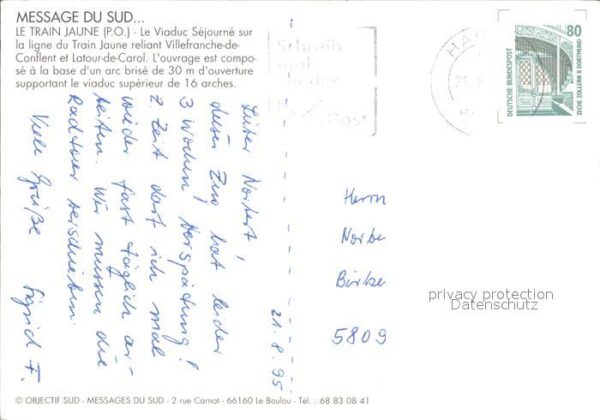 MESSAGE DU SUD...
LE TRAIN JAUNE (P.O.) - Le Viaduc Séjourné sur
la ligne du Train Jaune reliant Villefranche-de-
Conflent et Latour-de-Carol. L'ouvrage est compo-
sé à la base d'un arc brisé de 30 m d'ouverture
supportant le viaduc supérieur de 16 arches.
Schreib
mal
wieder
Post
HA
21.
80
DEUTSCHE BUNDESPOST
ZECHE ZOLLERN II DORTMUND
21.8.95
Lieber Norbert,
dieser Zug hat leider
3 Wochen Verspätung!
Z Zeit darf ich mal
wieder fast täglich ar-
beiten. Wir müssen die
Radtour verschieben.
Viele Grüße
Sigrid F.
Herrn
Norbe
Birke
5809
privacy protection
Datenschutz
© OBJECTIF SUD - MESSAGES DU SUD - 2 rue Carnot - 66160 Le Boulou - Tél. : 68 83 08 41